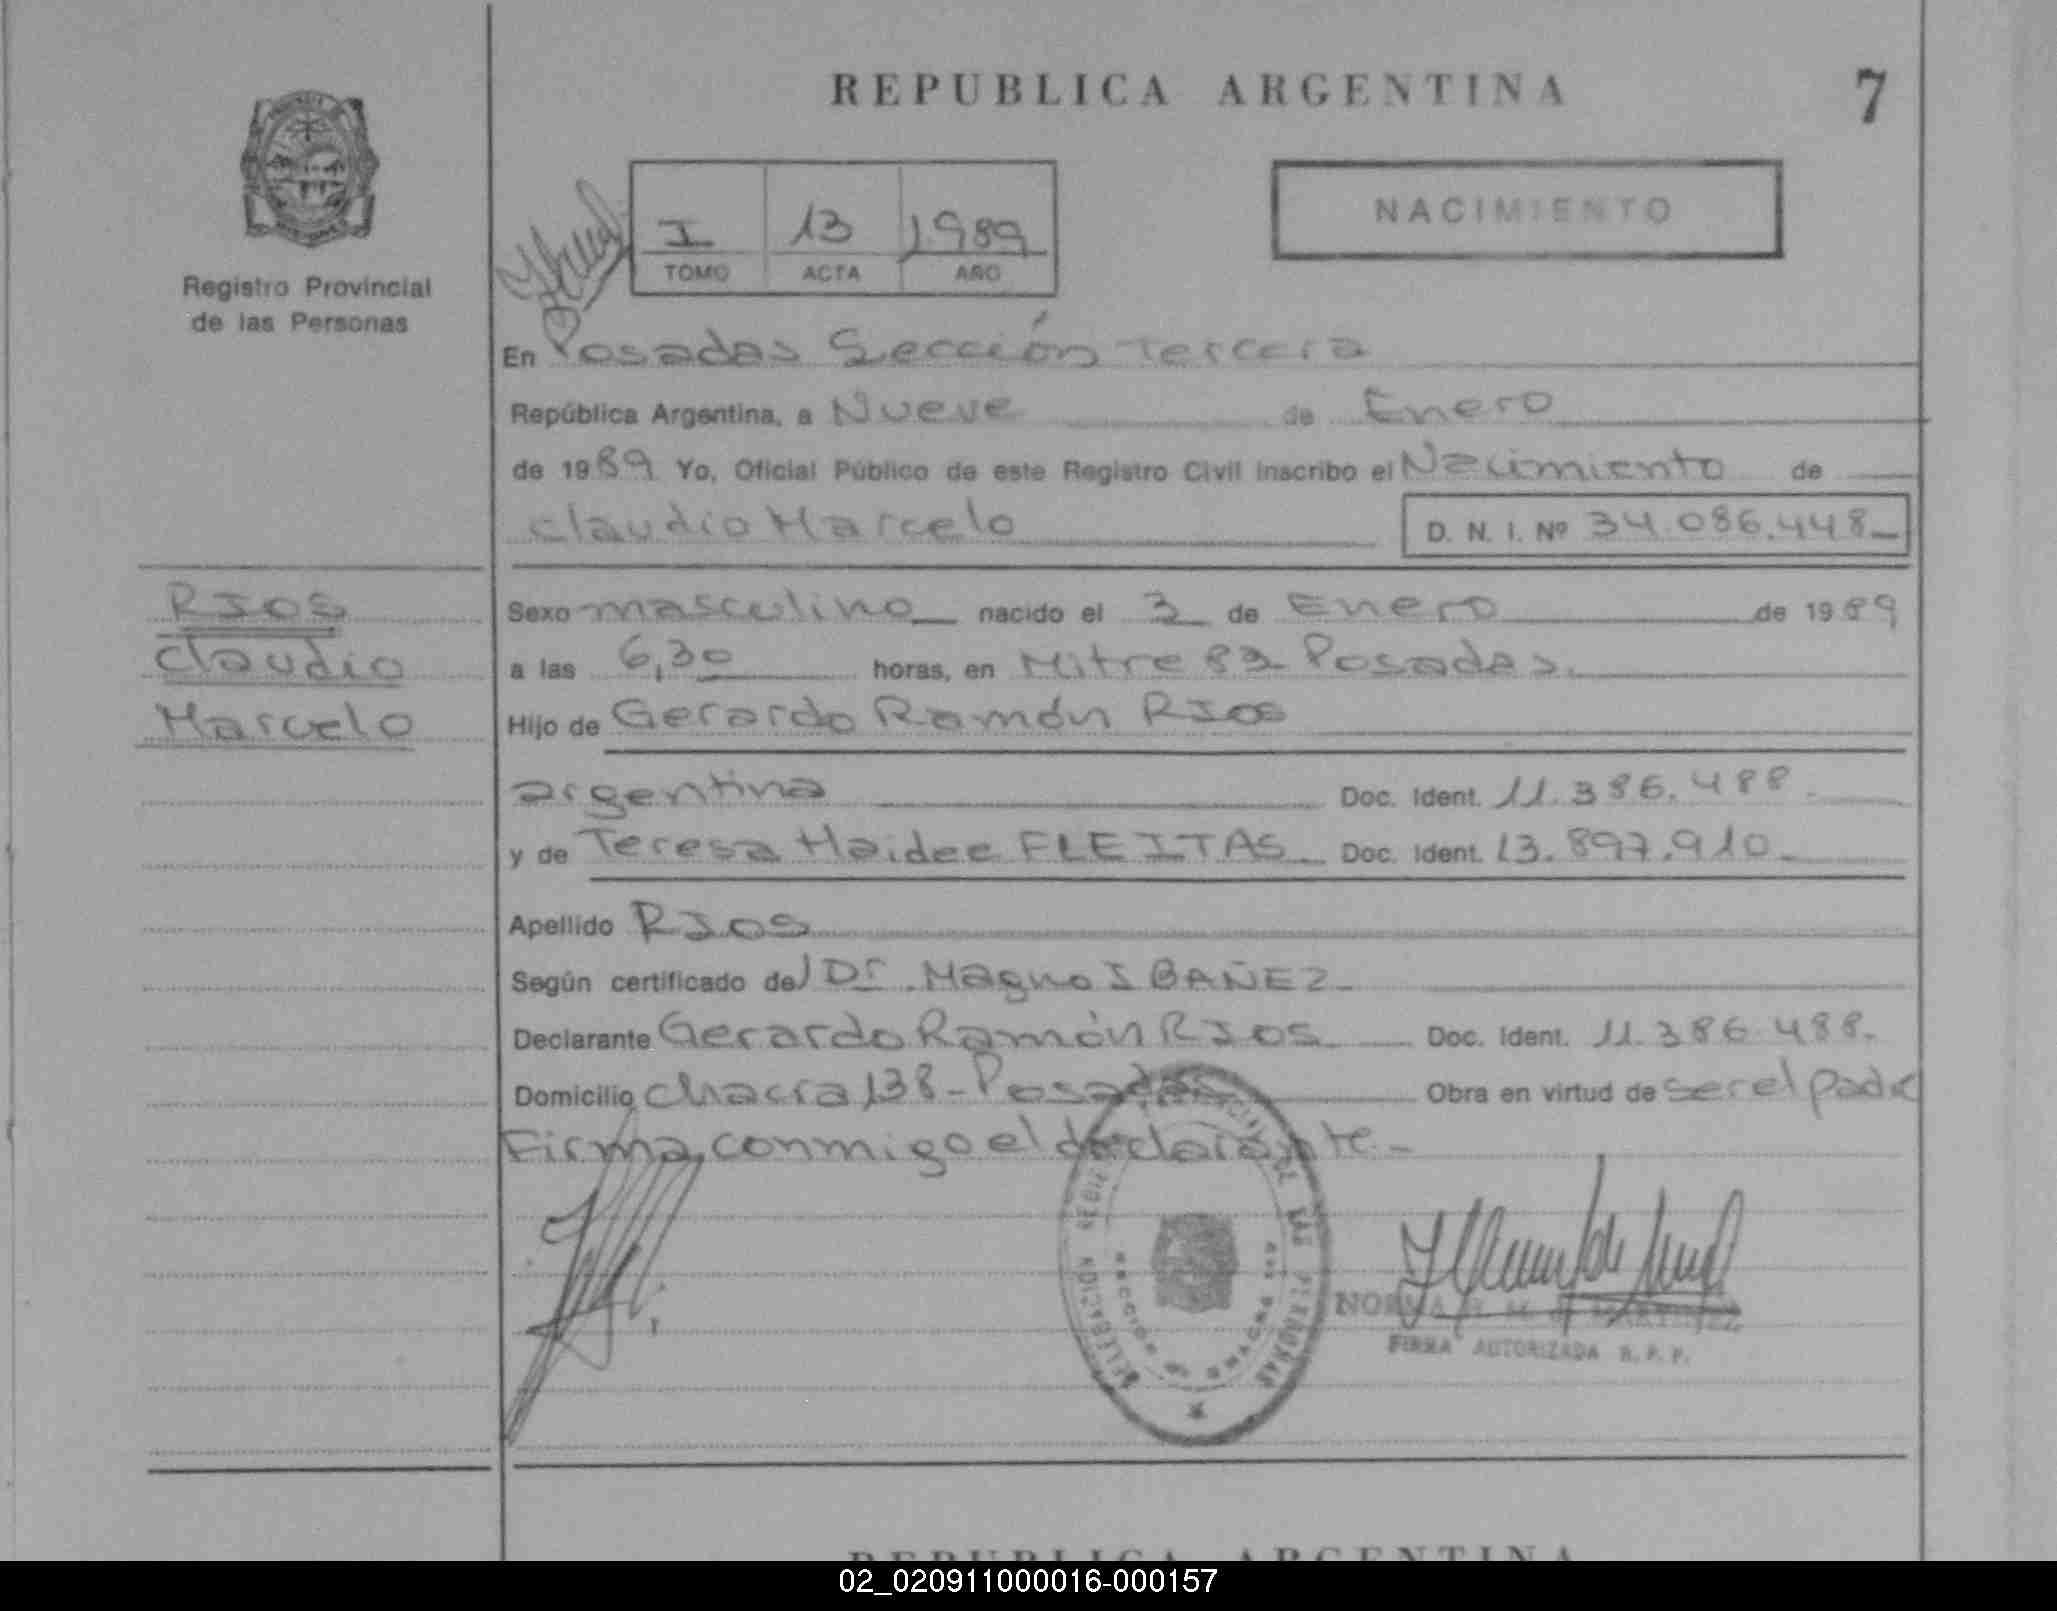 REPUBLICA ARGENTINA
7
Registro Provincial
de las Personas
I 13 1989
TOMO ACTA AÑO
NACIMIENTO
En Posadas Sección Tercera
República Argentina, a Nueve de Enero
de 1989 Yo, Oficial Público de este Registro Civil inscribo el Nacimiento de
Claudio Marcelo D. N. I. Nº 34.086.448
RIOS
Claudio
Marcelo
Sexo masculino nacido el 3 de Enero de 1989
a las 6,30 horas, en Mitre 83 Posadas.
Hijo de Gerardo Ramón RIOS
argentina Doc. Ident. 11.386.488.
y de Teresa Haidee FLEITAS Doc. Ident. 13.897.910
Apellido RIOS
Según certificado del Dr. Magno IBAÑEZ
Declarante Gerardo Ramón RIOS Doc. Ident. 11.386.488.
Domicilio Chacra 138 - Posadas Obra en virtud de ser el padre
Firma conmigo el declarante.-
DE LAS PERSONAS
DELEGACION
SECCION
NORMA MARTINEZ
FIRMA AUTORIZADA R. P. P.
REPUBLICA ARGENTINA
02_020911000016-000157